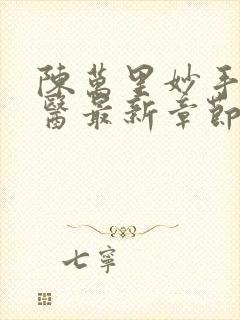 陳萬里妙手
醫最新章節
七寧